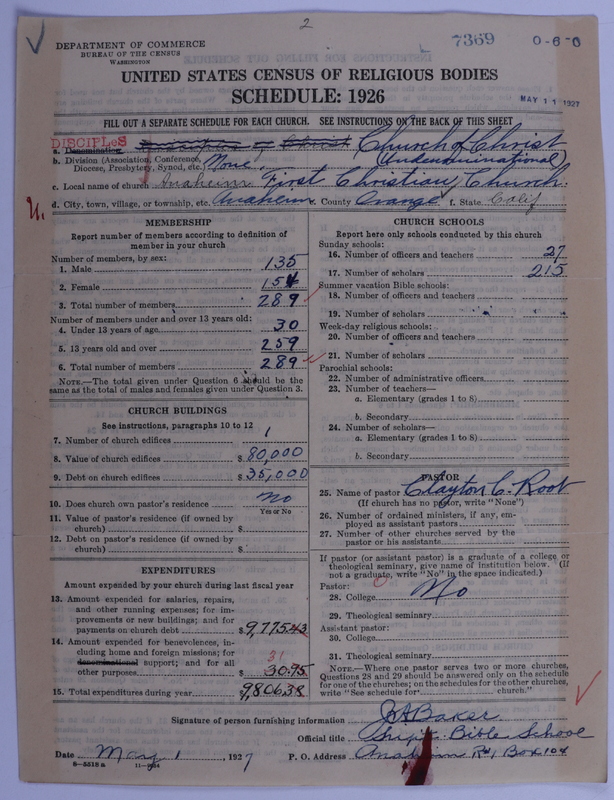 2
7369 0-6-0
DEPARTMENT OF COMMERCE
BUREAU OF THE CENSUS
WASHINGTON
UNITED STATES CENSUS OF RELIGIOUS BODIES
SCHEDULE: 1926
MAY 11 1927
FILL OUT A SEPARATE SCHEDULE FOR EACH CHURCH. SEE INSTRUCTIONS ON THE BACK OF THIS SHEET
DISCIPLES
a. Denomination Disciples of Christ Church of Christ
b. Division (Association, Conference, None (Undenominational)
Diocese, Presbytery, Synod, etc.)
c. Local name of church Anaheim First Christian Church.
d. City, town, village, or township, etc. Anaheim e. County Orange f. State Calif
U.
MEMBERSHIP
Report number of members according to definition of
member in your church
Number of members, by sex:
1. Male 135
2. Female 154
3. Total number of members 289
Number of members under and over 13 years old:
4. Under 13 years of age 30
5. 13 years old and over 259
6. Total number of members 289
NOTE.—The total given under Question 6 should be the
same as the total of males and females given under Question 3.
CHURCH BUILDINGS
See instructions, paragraphs 10 to 12
7. Number of church edifices 1
8. Value of church edifices $ 80,000
9. Debt on church edifices $ 35,000
10. Does church own pastor's residence no
Yes or No
11. Value of pastor's residence (if owned by
church) $
12. Debt on pastor's residence (if owned by
church) $
EXPENDITURES
Amount expended by your church during last fiscal year
13. Amount expended for salaries, repairs,
and other running expenses; for im-
provements or new buildings; and for
payments on church debt $ 9,775.43
14. Amount expended for benevolences, in-
cluding home and foreign missions; for
denominational support; and for all
other purposes $ 30.95
31
15. Total expenditures during year 9,806.38
CHURCH SCHOOLS
Report here only schools conducted by this church
Sunday schools:
16. Number of officers and teachers 27
17. Number of scholars 215
Summer vacation Bible schools:
18. Number of officers and teachers
19. Number of scholars
Week-day religious schools:
20. Number of officers and teachers
21. Number of scholars
Parochial schools:
22. Number of administrative officers
23. Number of teachers—
a. Elementary (grades 1 to 8)
b. Secondary
24. Number of scholars—
a. Elementary (grades 1 to 8)
b. Secondary
PASTOR
25. Name of pastor Clayton C. Root
(If church has no pastor, write "None")
26. Number of ordained ministers, if any, em-
ployed as assistant pastors
27. Number of other churches served by the
pastor or his assistants
If pastor (or assistant pastor) is a graduate of a college or
theological seminary, give name of institution below. (If
not a graduate, write "No" in the space indicated.)
Pastor:
28. College No
29. Theological seminary
Assistant pastor:
30. College
31. Theological seminary
NOTE.—Where one pastor serves two or more churches,
Questions 28 and 29 should be answered only on the schedule
for one of the churches; on the schedules for the other churches,
write "See schedule for church."
Signature of person furnishing information J A Baker
Official title Supt. Bible School
Date May 1, 1927 P. O. Address Anaheim R#1 Box 104
8—5518 a